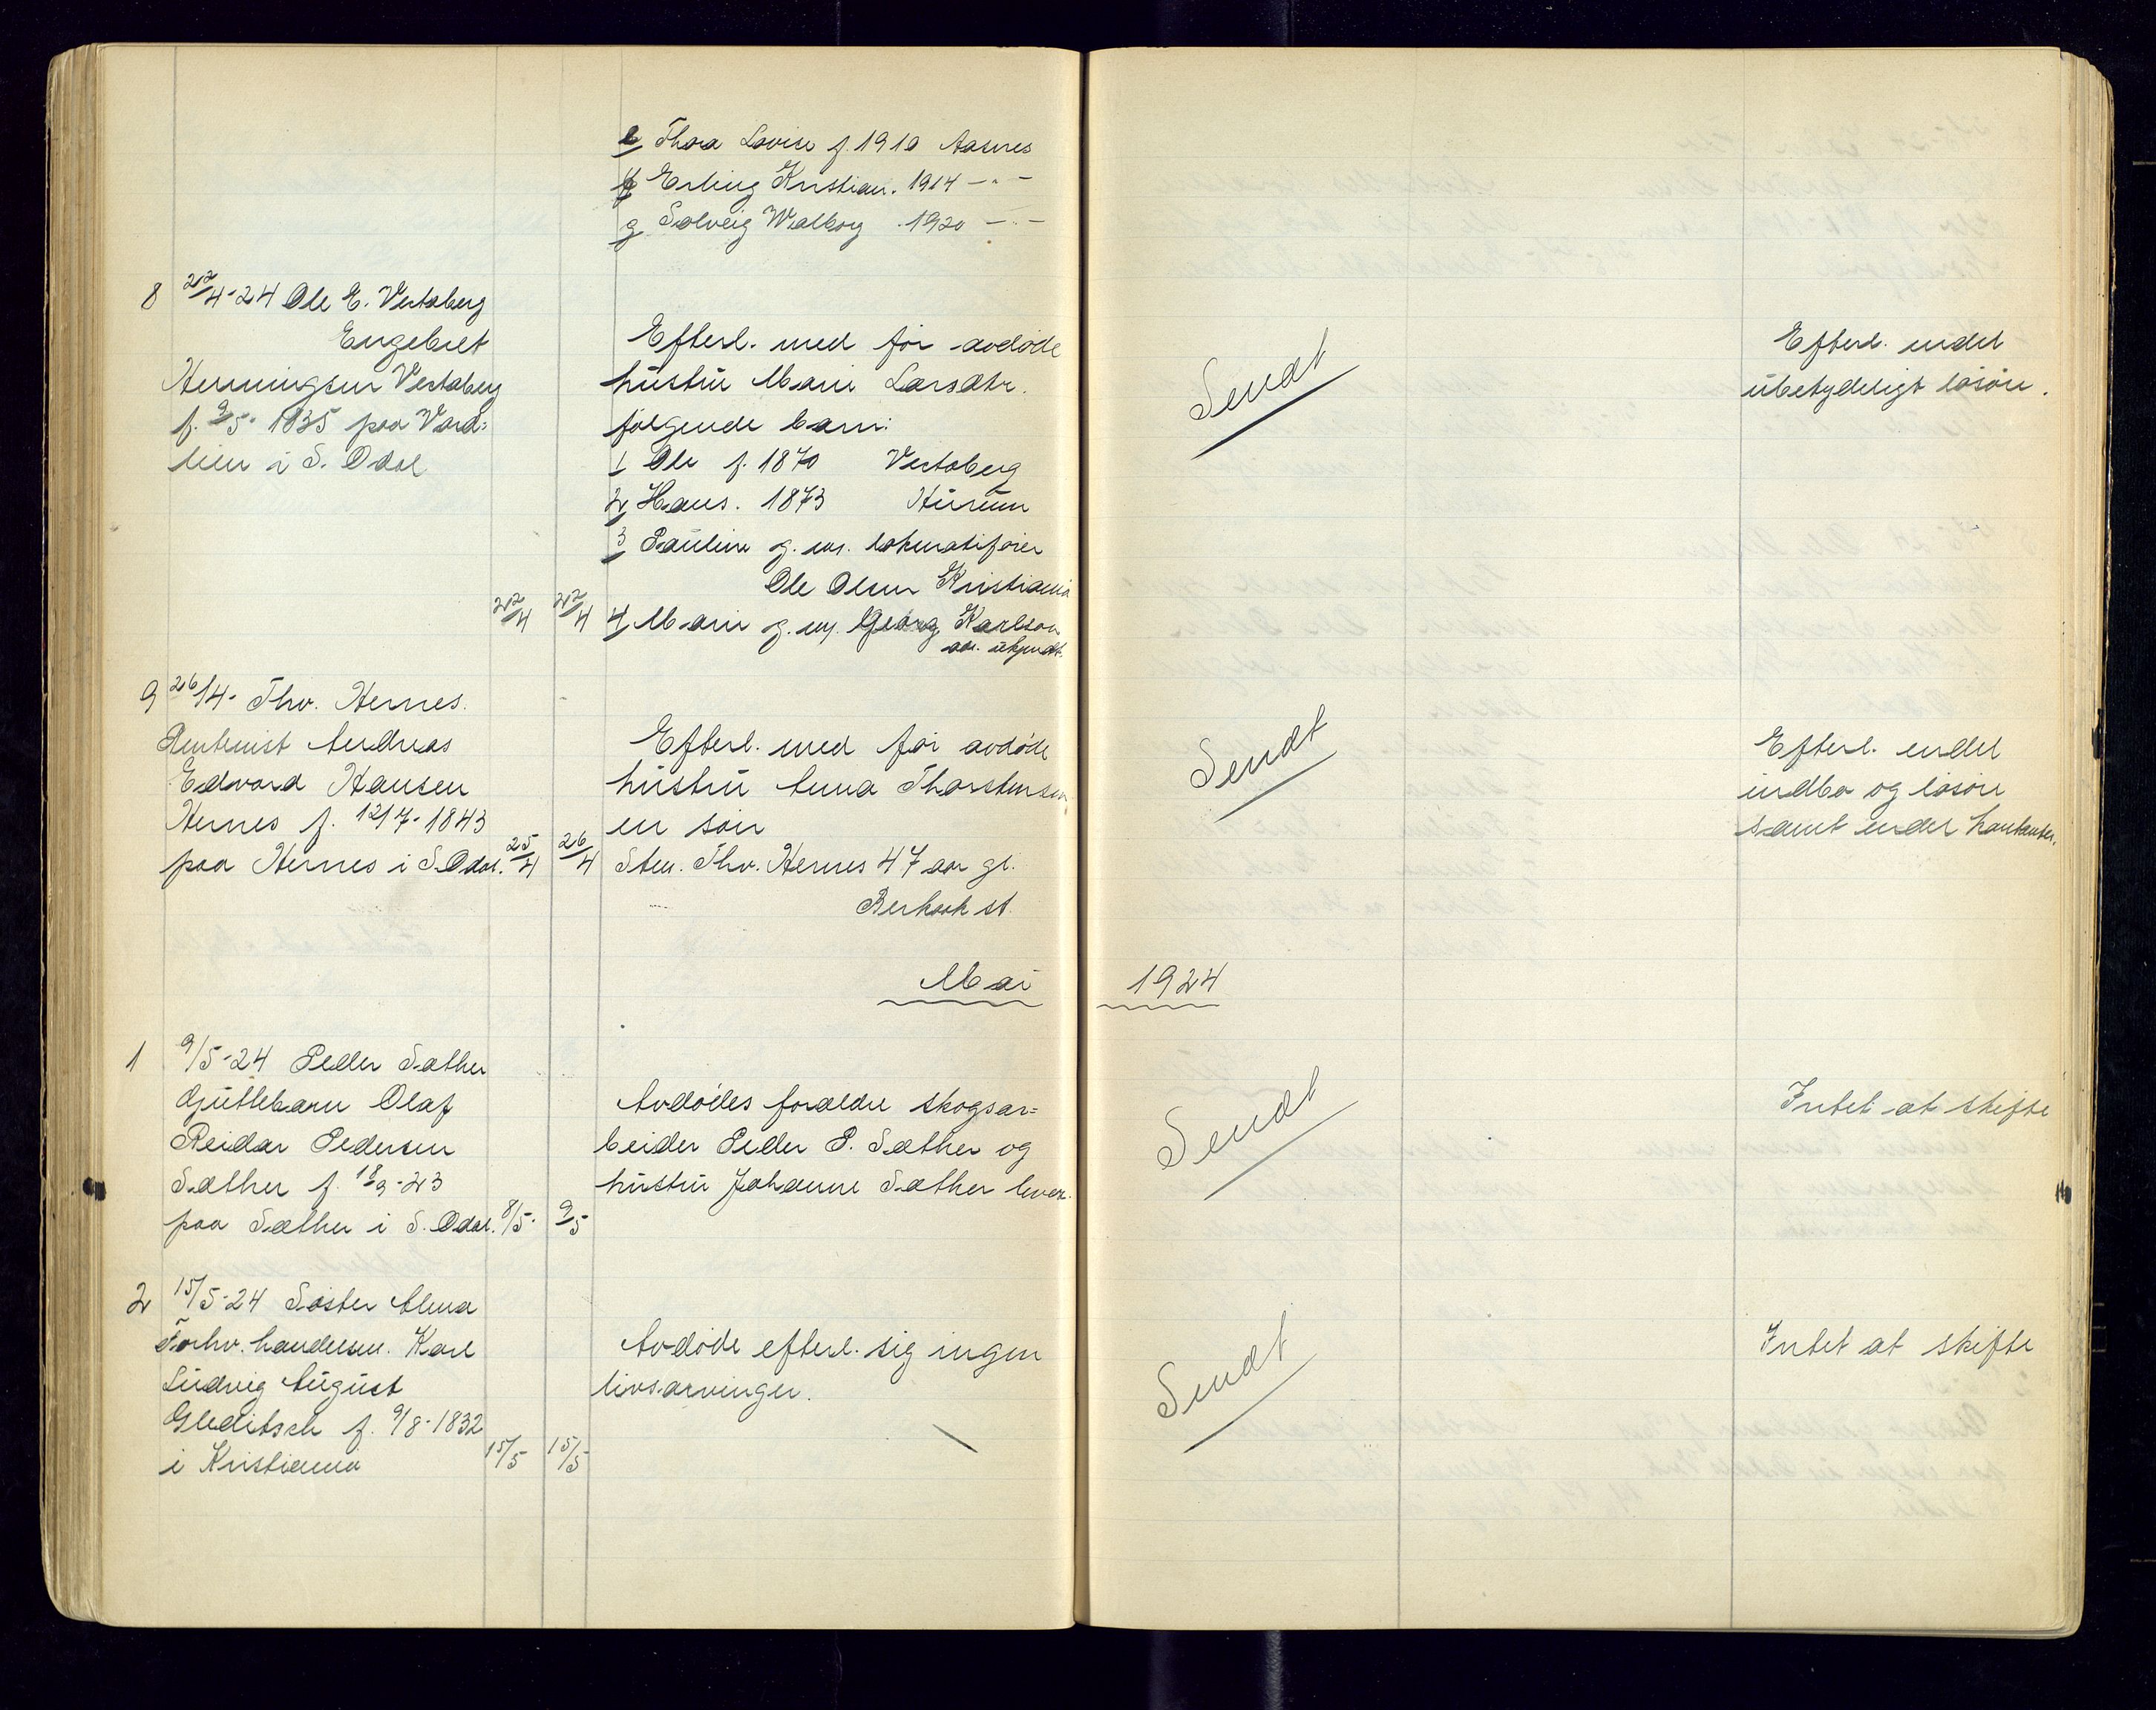 e, Thora Lovise f. 1910 Aasnes
f, Erling Kristian. 1914 — " —
g, Solveig Walborg . 1920 — " —
8 22/4-24 Ole E. Vestaberg
Engebret
Henningsen Vestaberg
f. 9/5- 1835 paa Vard-
lien i S. Odal
22/4 22/4
Efterl. med før avdøde
hustru Mari Larsdtr.
følgende barn:
1, Ole f. 1870 Vestaberg
2, Hans. 1873 Hurum
3, Pauline g. m. lokmotifører
Ole Olsen Kristiania
4, Marie g. m. Georg Karlson
adr. ukjendt.
Sendt
Efterl. endel
ubetydeligt løsøre.
9 26/4- Thv. Hernes.
Rentenist Andreas
Edvard Hansen
Hernes f. 12/7-1843
paa Hernes i S. Odal. 25/4 26/4
Efterl. med før avdøde
hustru Anna Thorstensen
en søn
Stm. Thv. Hernes 47 aar gl.
Berkaak st.
Sendt
Efterl. endel
indbo og løsøre
samt endel kontanter.
Mai 1924
1 9/5-24 Peder Sæther
Gutteharn Olaf
Reidar Pedersen
Sæther f. 18/9-23
paa Sæther i S. Odal. 8/5- 9/5
Avdødes forældre skogsar-
beider Peder P. Sæther og
hustru Johanne Sæther lever.
Sendt
Intet at skifte
2 15/5-24 Søster Alma
Forhv. handelsm. Karl
Ludvig August
Gleditsch f. 9/8-1832
i Kristiania 15/5 15/5
Avdøde efterl. sig ingen
livsarvinger.
Sendt
Intet at skifte